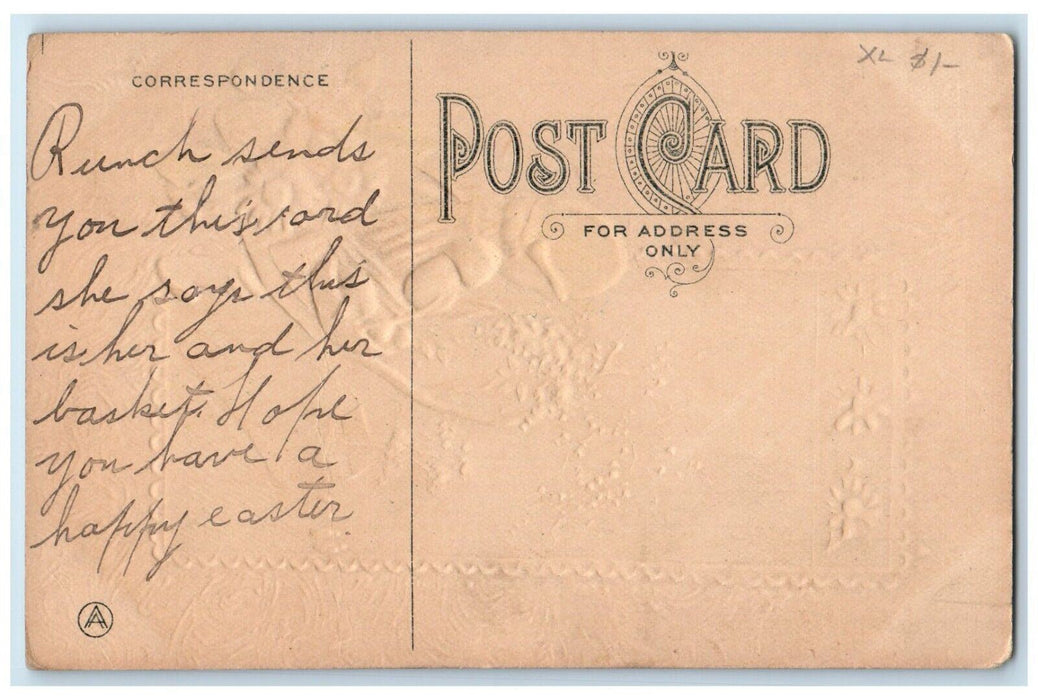 XL $1-
CORRESPONDENCE
POST CARD
FOR ADDRESS
ONLY
Runch sends
you this card
she says this
is her and her
basket. Hope
you have a
happy easter
A